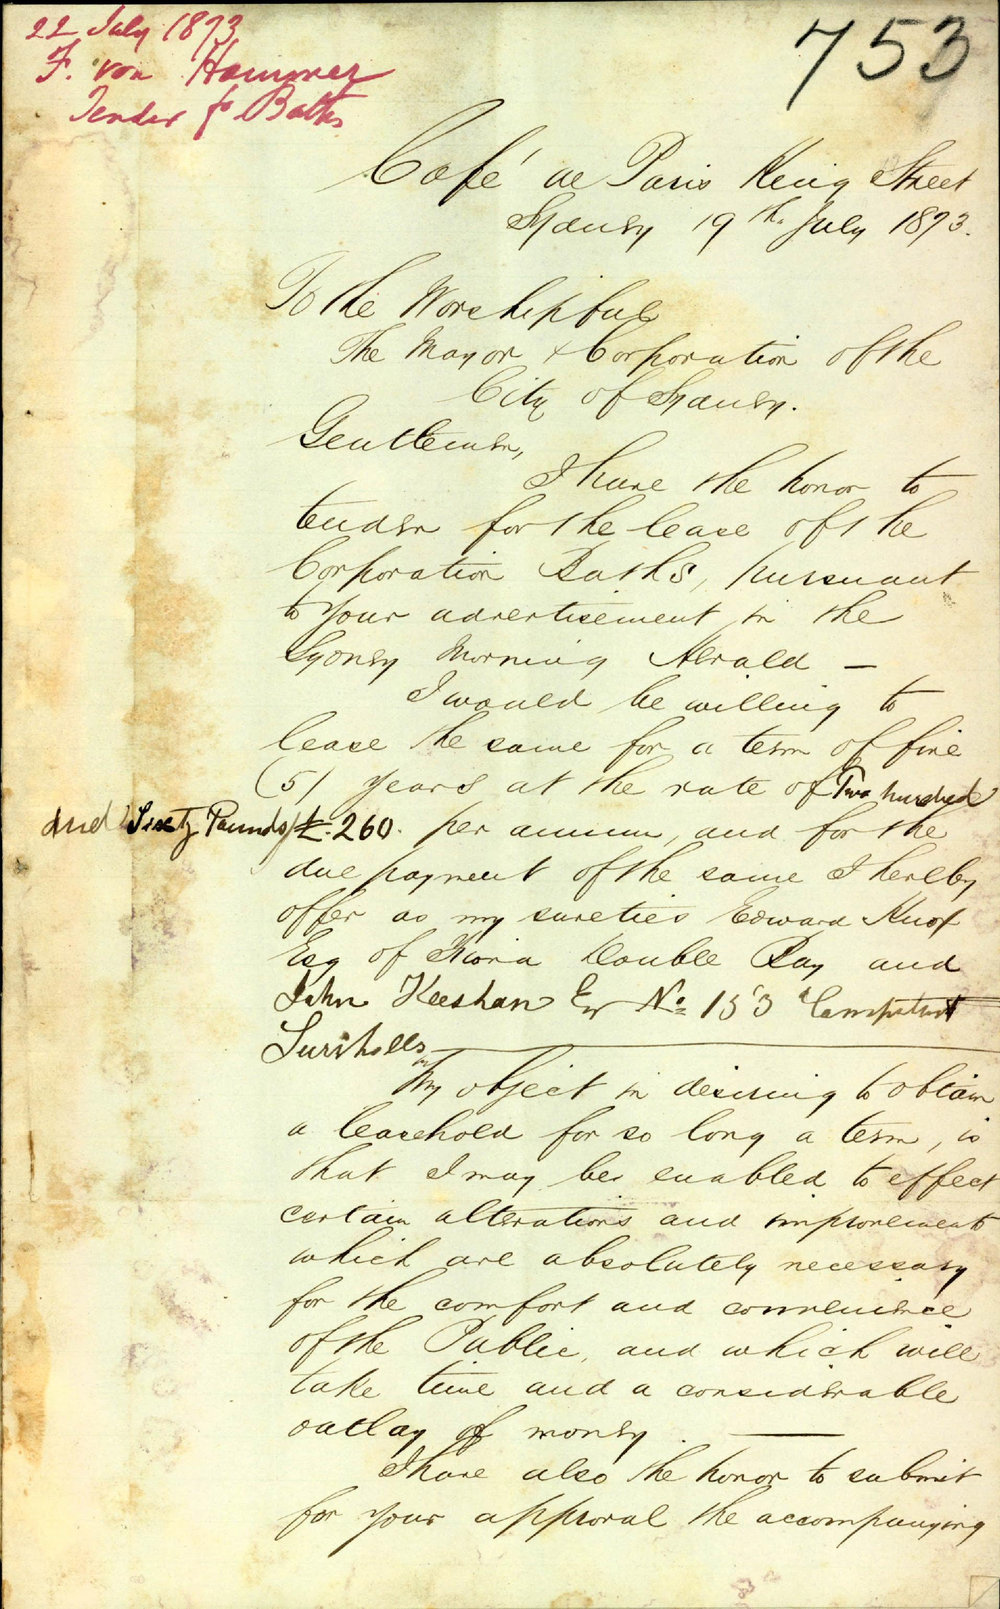 22 July 1873
F. von Hammer
Tender for Baths
753
Café de Paris King Street
Sydney 19th July 1873.
To the Worshipful
The Mayor & Corporation of the
City of Sydney.
Gentlemen,
I have the honor to
tender for the lease of the
Corporation Baths, pursuant
to your advertisement in the
Sydney Morning Herald —
I would be willing to
lease the same for a term of five
(5) years at the rate of Two hundred
and Sixty Pounds/£.260. per annum, and for the
due payment of the same I hereby
offer as my sureties Edward Knox
Esq of Fiona Double Bay and
John Keeshan Esq No. 153 Campbell St
Surry hills
My object in desiring to obtain
a leasehold for so long a term, is
that I may be enabled to effect
certain alterations and improvements
which are absolutely necessary
for the comfort and convenience
of the Public, and which will
take time and a considerable
outlay of money. —
I have also the honor to submit
for your approval the accompanying